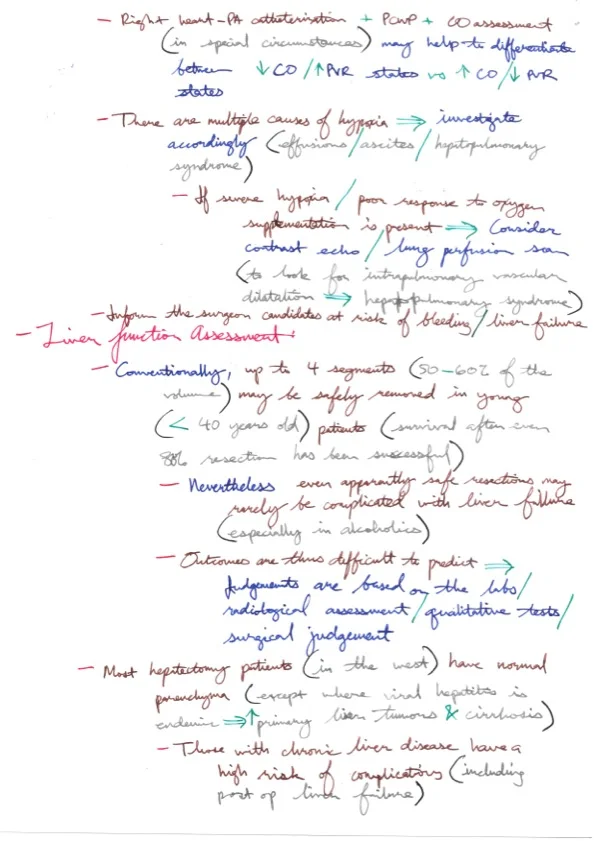 - Right heart-PA catheterisation + PCWP + CO assessment
(in special circumstances) may help to differentiate
between ↓CO/↑PVR states vs ↑CO/↓PVR
states
- There are multiple causes of hypoxia ⇒ investigate
accordingly (effusions/ascites/hepatopulmonary
syndrome)
- If severe hypoxia/poor response to oxygen
supplementation is present ⇒ Consider
contrast echo/lung perfusion scan
(to look for intrapulmonary vascular
dilatation ⇒ hepatopulmonary syndrome)
- Inform the surgeon candidates at risk of bleeding/liver failure
- Liver function Assessment:
- Conventionally, up to 4 segments (50-60% of the
volume) may be safely removed in young
(< 40 years old) patients (survival after even
80% resection has been successful)
- Nevertheless even apparently safe resections may
rarely be complicated with liver failure
(especially in alcoholics)
- Outcomes are thus difficult to predict ⇒
Judgements are based on the labs/
radiological assessment/qualitative tests/
surgical judgement
- Most hepatectomy patients (in the west) have normal
parenchyma (except where viral hepatitis is
endemic ⇒ ↑primary liver tumors & cirrhosis)
- Those with chronic liver disease have a
high risk of complications (including
post op liver failure)